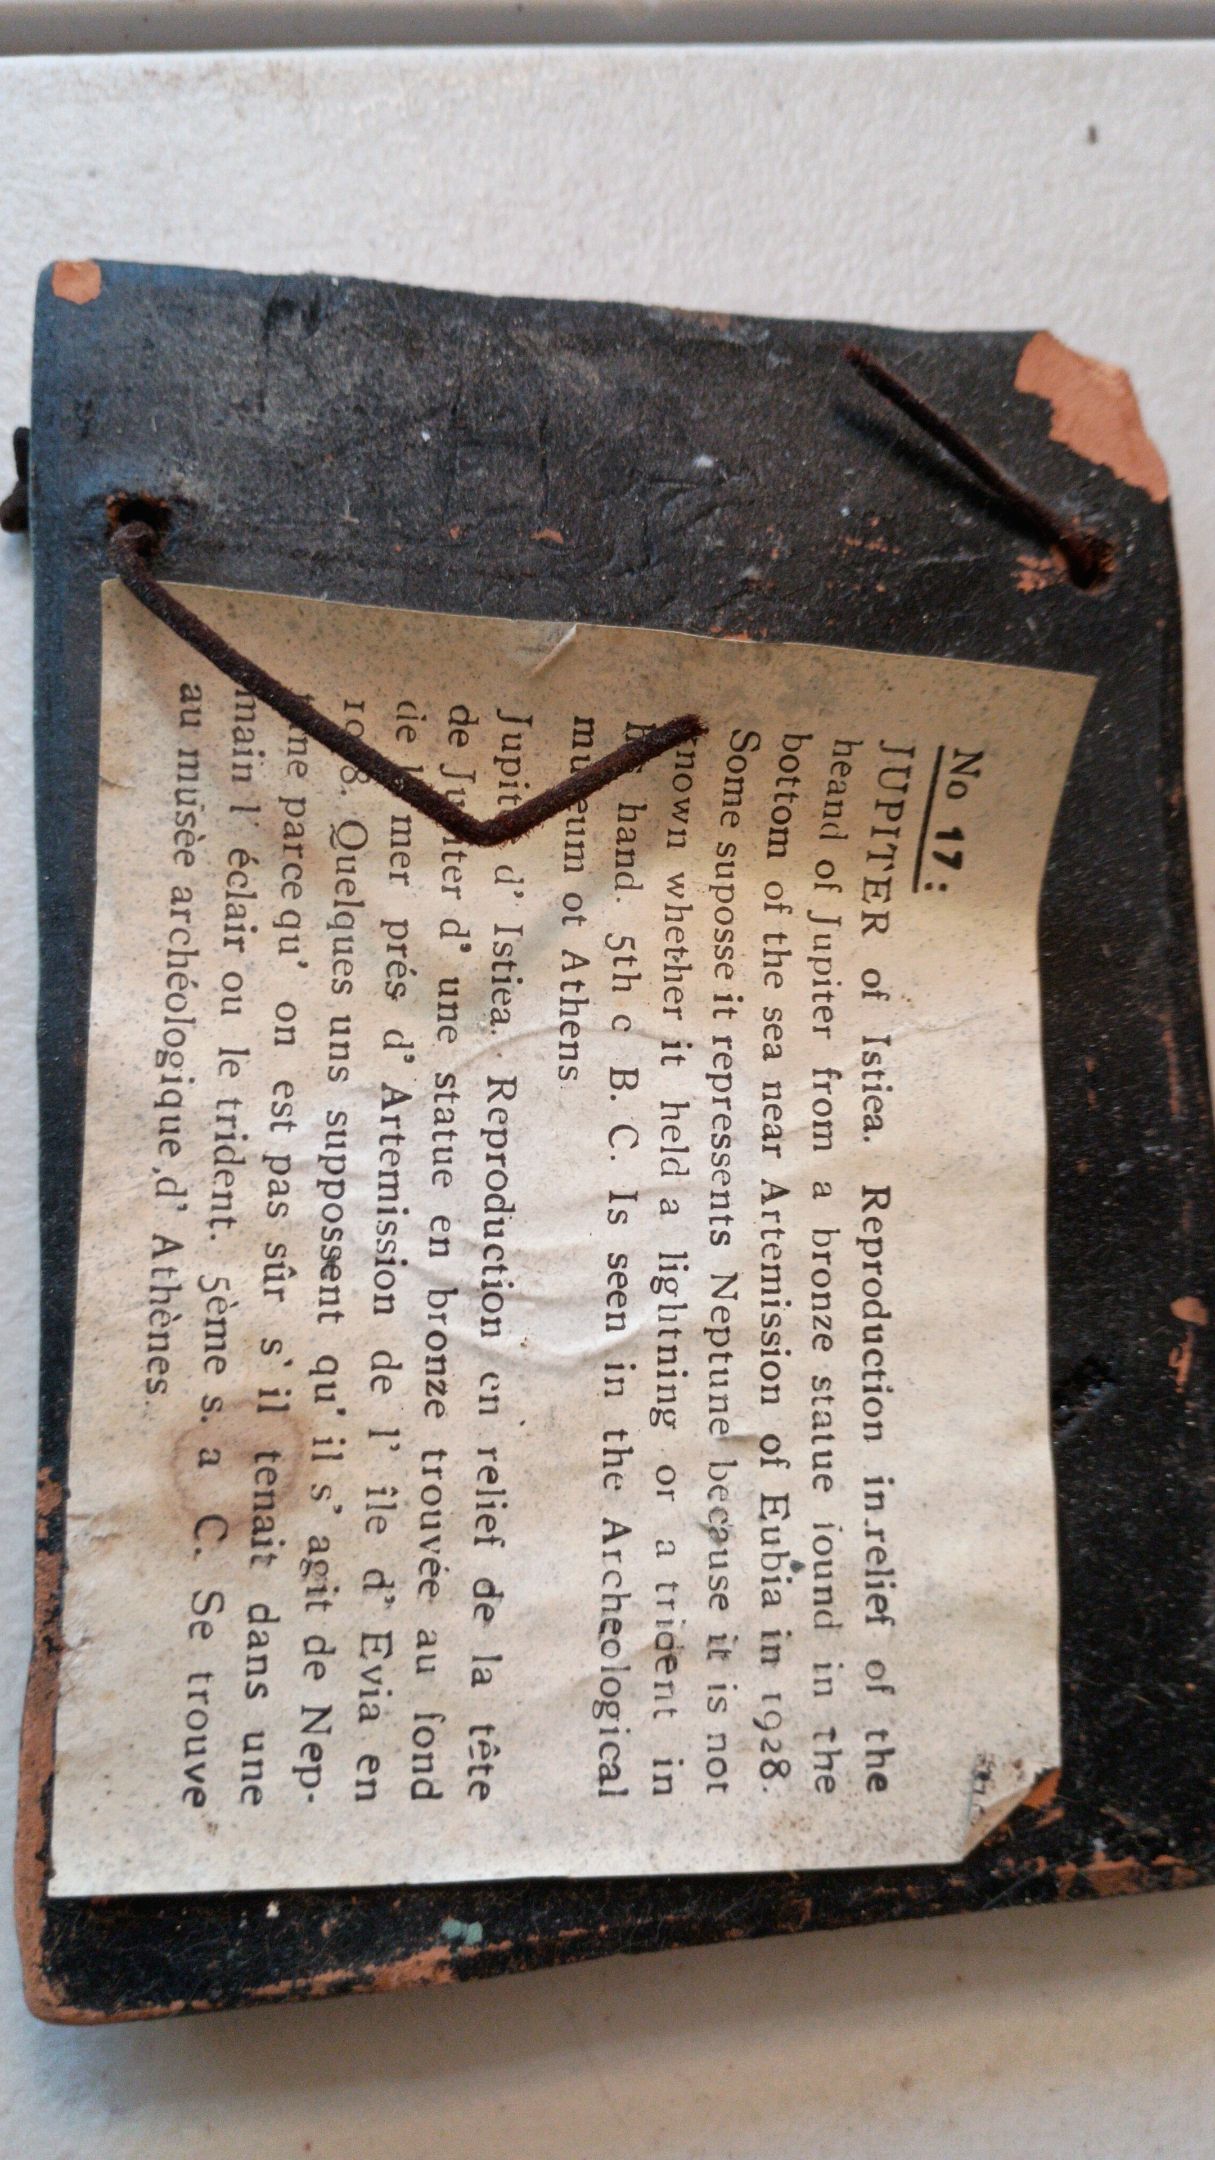 No 17:
JUPITER of Istiea. Reproduction in relief of the
heand of Jupiter from a bronze statue iound in the
bottom of the sea near Artemission of Eubia in 1928.
Some suposse it repressents Neptune because it is not
known whether it held a lightning or a trident in
hand. 5th c B. C. Is seen in the Archeological
museum ot Athens
Jupiter d' Istiea. Reproduction en relief de la tête
de Jupiter d' une statue en bronze trouvée au fond
de mer prés d' Artemission de l' île d' Evia en
Quelques uns suppossent qu' il s' agit de Nep-
tune parce qu' on est pas sûr s' il tenait dans une
main l' éclair ou le trident. 5ème s. a C. Se trouve
au musèe archéologique, d' Athènes.